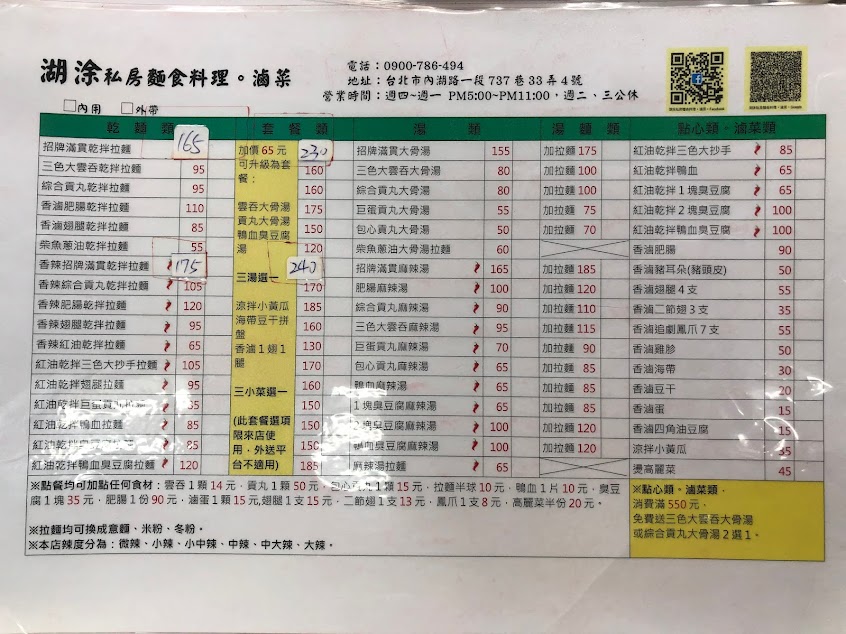 湖涂私房麵食料理。滷菜
電話：0900-786-494
地址：台北市內湖路一段737巷33弄4號
營業時間：週四~週一 PM5:00~PM11:00，週二、三公休
□內用 □外帶
乾麵類 套餐類 湯類 湯麵類 點心類、滷菜類
招牌滿貫乾拌拉麵 165
三色大雲吞乾拌拉麵 95
綜合貢丸乾拌拉麵 95
香滷肥腸乾拌拉麵 110
香滷翅腿乾拌拉麵 85
柴魚蔥油乾拌拉麵 55
香辣招牌滿貫乾拌拉麵 175
香辣綜合貢丸乾拌拉麵 105
香辣肥腸乾拌拉麵 120
香辣翅腿乾拌拉麵 95
香辣紅油乾拌拉麵 65
紅油乾拌三色大抄手拉麵 105
紅油乾拌翅腿拉麵 95
紅油乾拌巨蛋貢丸拉麵
紅油乾拌鴨血拉麵 85
紅油乾拌臭豆腐拉麵 85
紅油乾拌鴨血臭豆腐拉麵 120
加價65元
可升級為套
餐：
雲吞大骨湯
貢丸大骨湯
鴨血臭豆腐
湯
三湯選一
涼拌小黃瓜
海帶豆干拼
盤
香滷1翅1
腿
三小菜選一
(此套餐選項
限來店使
用，外送平
台不適用)
230
160
160
175
150
120
240
170
185
160
130
170
160
150
150
150
185
招牌滿貫大骨湯 155 加拉麵 175
三色大雲吞大骨湯 80 加拉麵 100
綜合貢丸大骨湯 80 加拉麵 100
巨蛋貢丸大骨湯 55 加拉麵 75
包心貢丸大骨湯 50 加拉麵 70
柴魚蔥油大骨湯拉麵 60
招牌滿貫麻辣湯 165 加拉麵 185
肥腸麻辣湯 100 加拉麵 120
綜合貢丸麻辣湯 90 加拉麵 110
三色大雲吞麻辣湯 95 加拉麵 115
巨蛋貢丸麻辣湯 70 加拉麵 90
包心貢丸麻辣湯 65 加拉麵 85
鴨血麻辣湯 65 加拉麵 85
1塊臭豆腐麻辣湯 65 加拉麵 85
2塊臭豆腐麻辣湯 100 加拉麵 120
鴨血臭豆腐麻辣湯 100 加拉麵 120
麻辣湯拉麵 65
紅油乾拌三色大抄手 85
紅油乾拌鴨血 65
紅油乾拌1塊臭豆腐 65
紅油乾拌2塊臭豆腐 100
紅油乾拌鴨血臭豆腐 100
香滷肥腸 90
香滷豬耳朵(豬頭皮) 50
香滷翅腿4支 55
香滷二節翅3支 35
香滷追劇鳳爪7支 55
香滷雞胗 50
香滷海帶 30
香滷豆干 20
香滷蛋 15
香滷四角油豆腐 15
涼拌小黃瓜 35
燙高麗菜 45
※點餐均可加點任何食材：雲吞1顆14元，貢丸1顆50元，包心貢丸1顆15元，拉麵半球10元，鴨血1片10元，臭豆
腐1塊35元，肥腸1份90元，滷蛋1顆15元,翅腿1支15元，二節翅1支13元，鳳爪1支8元，高麗菜半份20元。
※拉麵均可換成意麵、米粉、冬粉。
※本店辣度分為：微辣、小辣、小中辣、中辣、中大辣、大辣。
※點心類。滷菜類，
消費滿550元，
免費送三色大雲吞大骨湯
或綜合貢丸大骨湯2選1。